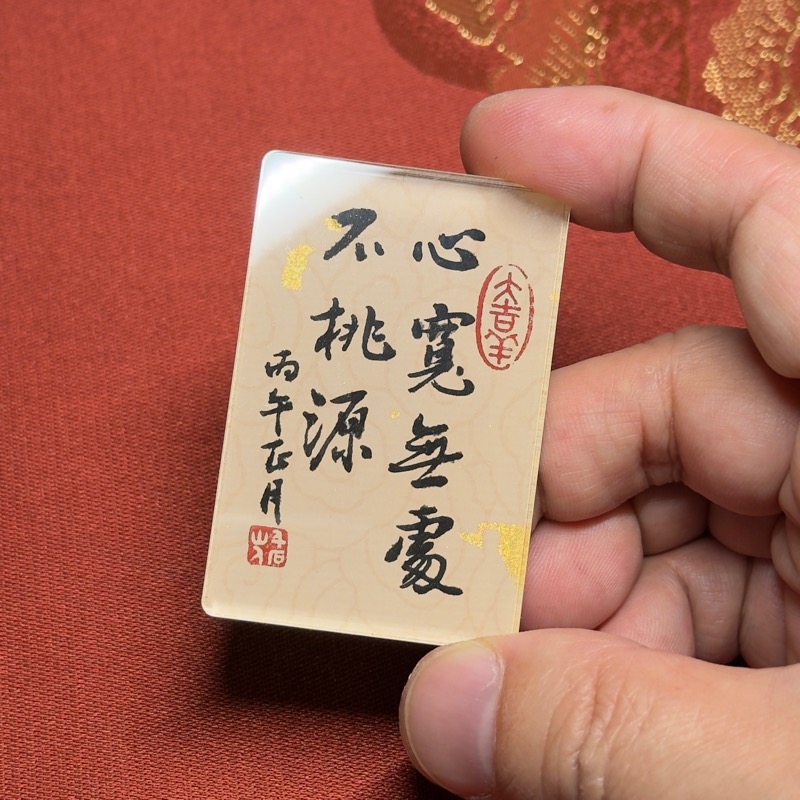 大吉羊
心寬無處
不桃源
丙午正月